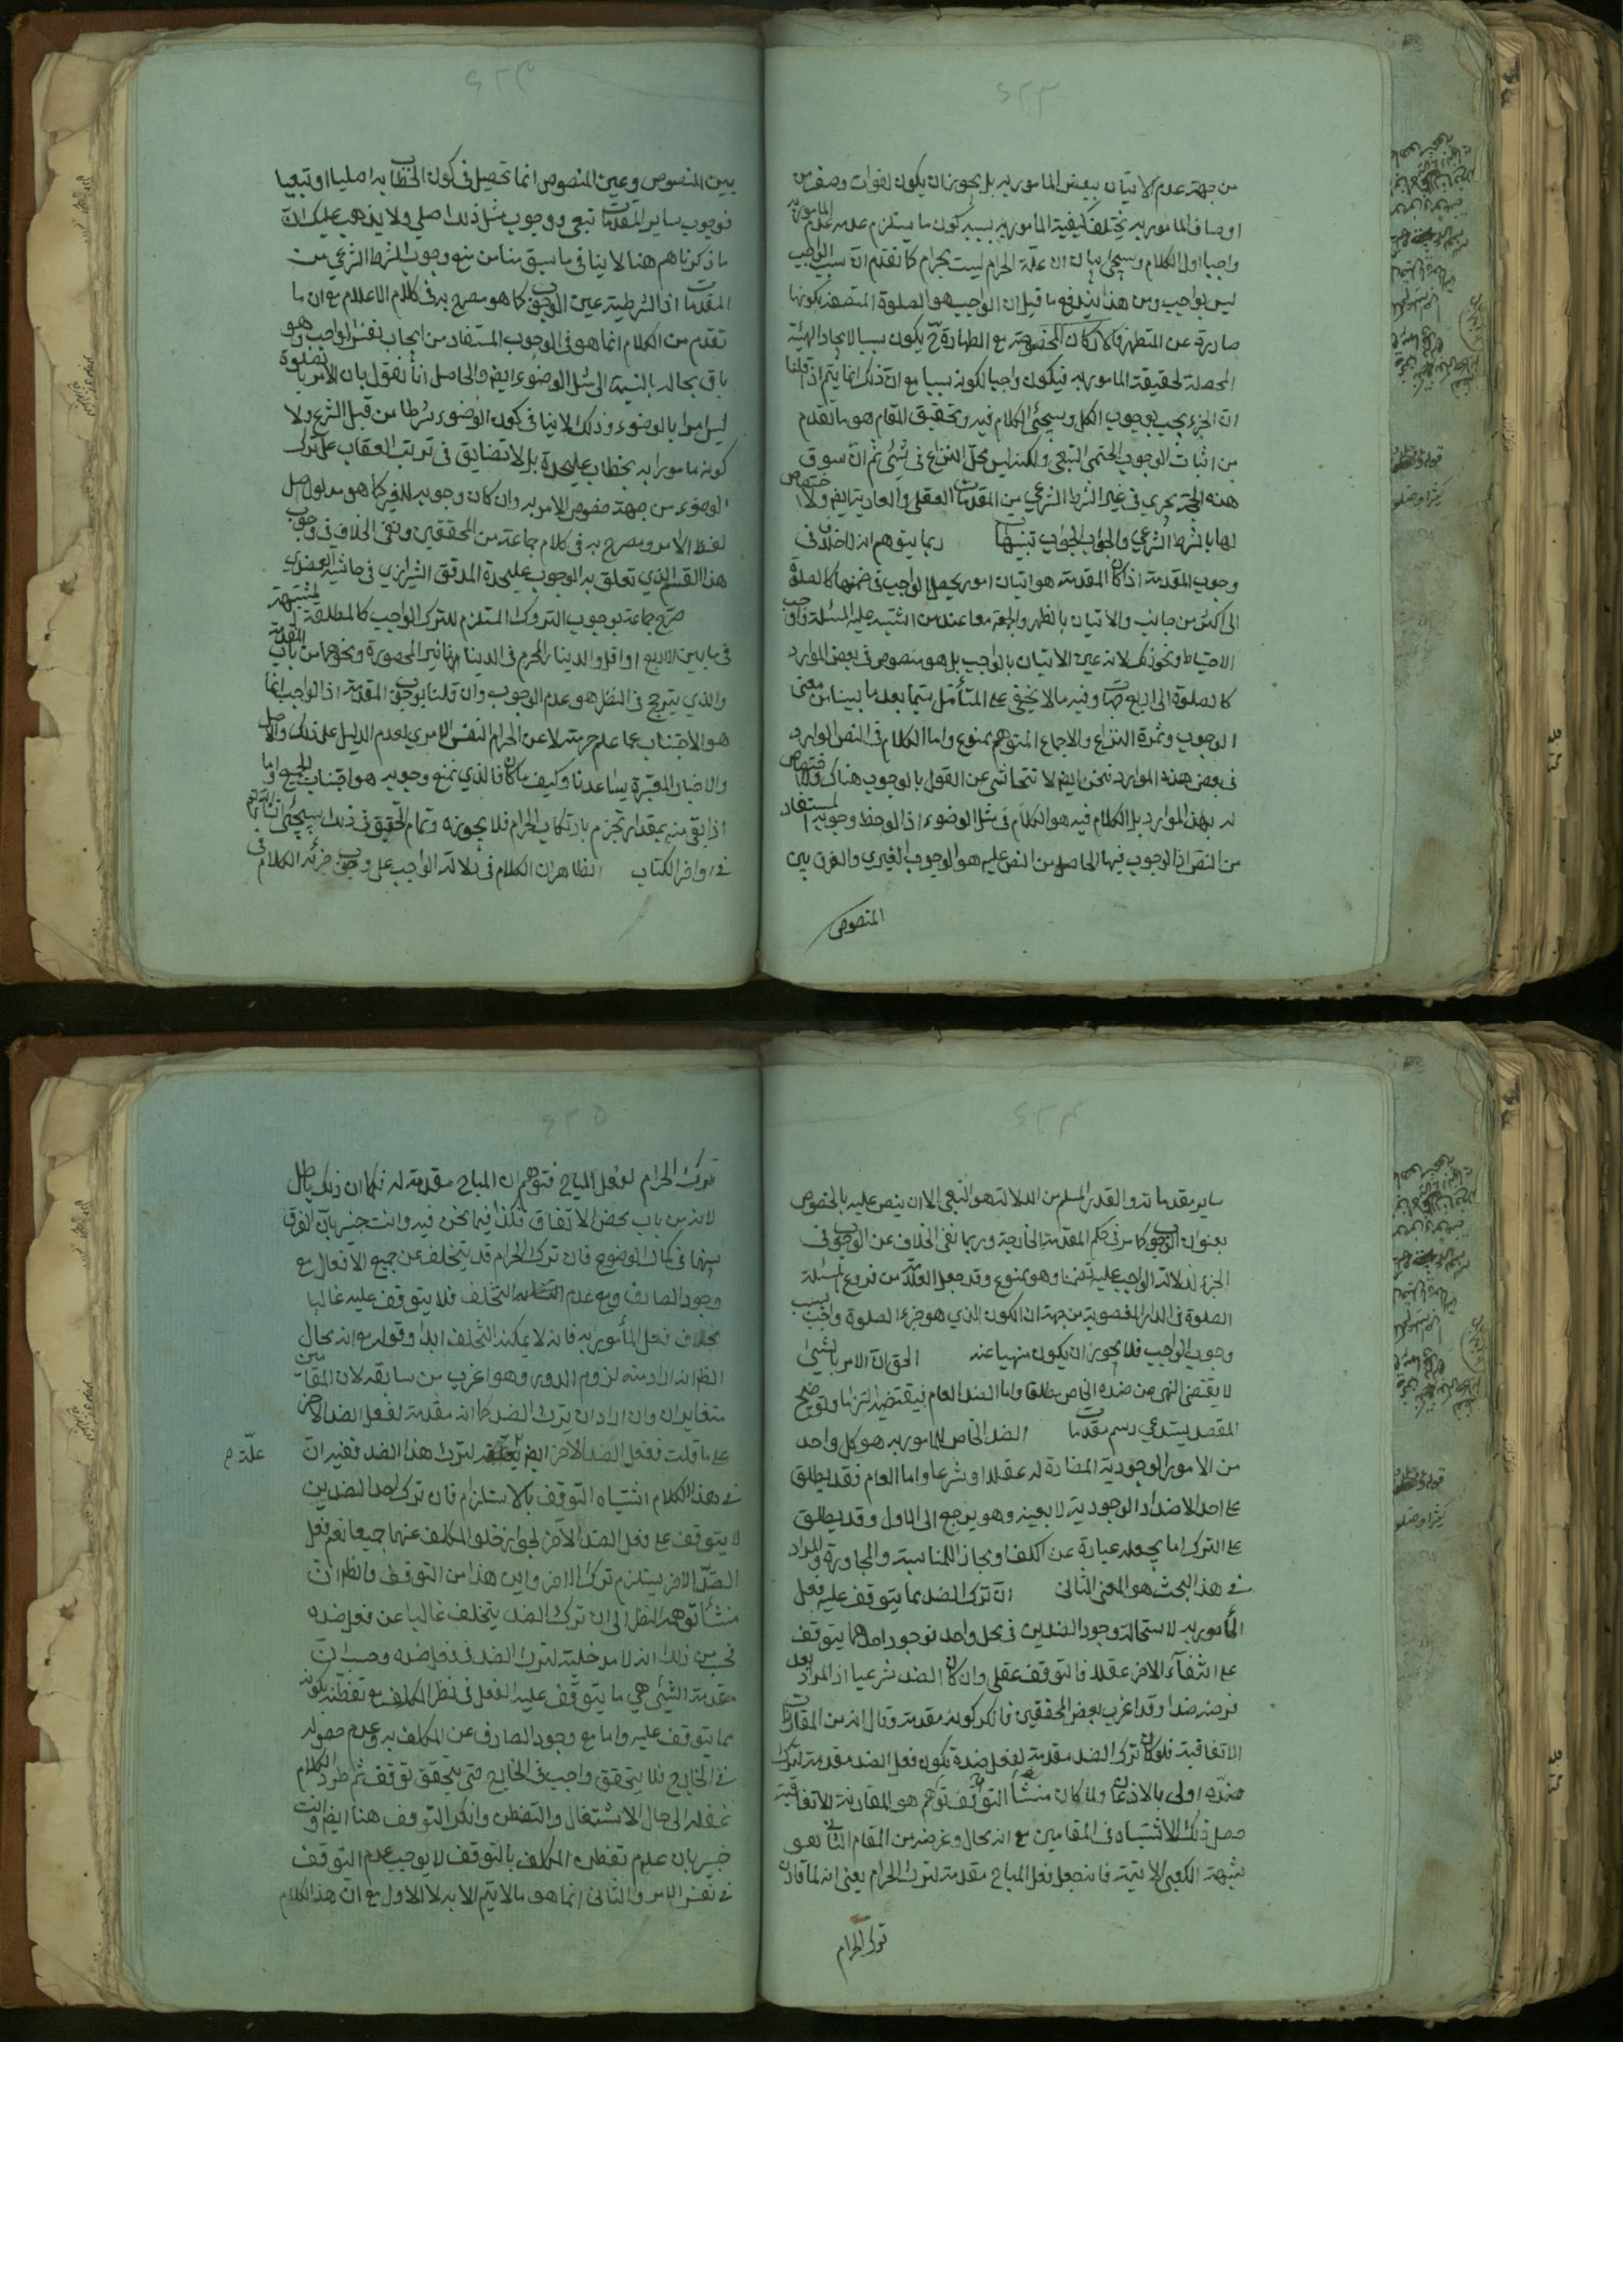 من جهة عدم الاتيان ببعض المامور به بل يجوز ان يكون لفوات وصف من
اوصاف المامور به يختلف كيفية المامور به بسببه كون ما يستلزم عدمه عدم المامور به
واجبا اول الكلام وسيجئ بيان ان علة الحرام ليست بحرام كما تقدم ان سبب الواجب
ليس بواجب ومن هذا يندفع ما قيل ان الواجب هو الصلوة المتصفة بكونها
صادرة عن المتطهر فالاركان المخصوصة مع الطهارة ح يكون سببا لايجاد الهيئة
المحصلة لحقيقة المامور به فيكون واجبا لكونه سببا مع ان ذلك انما يتم اذا قلنا
ان الجزء يجب بوجوب الكل وسيجئ الكلام فيه وتحقيق المقام هو ما تقدم
من اثبات الوجوب الحتمي التبعي ولكنه ليس محل النزاع في شئ ثم ان سوق
هذه الحجة يجري في غير الشرط الشرعي من المقدمات العقلي والعادية ايضا ولا اختصاص
لها بالشرط الشرعي والجواب الجواب تنبيهات ربما يتوهم انه لا خلاف في
وجوب المقدمة اذا كان المقدمة هو اتيان امور يحصل الواجب في ضمنها كالصلوة
الى اكثر من جانب والاتيان بالظهر والجمعة معا عند من اشتبه عليه المسئلة واوجب
الاحتياط ونحو ذلك لانه عين الاتيان بالواجب بل هو منصوص في بعض الموارد
كالصلوة الى اربع جهات وفيه ما لا يخفى على المتأمل سيما بعد ما بينا من معنى
الوجوب وثمرة النزاع والاجماع المتوهم ممنوع واما الكلام في النص الوارد
في بعض هذه الموارد فنحن ايضا لا نتحاشى عن القول بالوجوب هناك ولا اختصاص
له بهذه الموارد بل الكلام فيه هو الكلام في مثل الوضوء اذا لوحظ وجوبه المستفاد
من النص اذ الوجوب فيها الحاصل من النص عليه هو الوجوب الغيري والفرق بين
المنصوص
بين المنصوص وغير المنصوص انما تحصل في كون الخطاب به اصليا او تبعيا
فوجوب ساير المقدمات تبعي ووجوب مثل ذلك اصلي ولا يذهب عليك ان
ما ذكرناهم هنا لا ينافي ما سبق منا من منع وجوب الشرط الشرعي من
المقدمات اذ الشرطية غير الوجوب كما هو مصرح به في كلام الاعلام مع ان ما
تقدم من الكلام انما هو في الوجوب المستفاد من ايجاب نفس الواجب وهو
باق بحاله بالنسبة الى مثل الوضوء ايضا والحاصل انا نقول بان الامر بالصلوة
ليس امرا بالوضوء وذلك لا ينافي كون الوضوء شرطا من قبل الشرع ولا
كونه مامورا به بخطاب عليحدة بل لا تضايق في ترتب العقاب على ترك
الوضوء من جهة خصوص الامر به وان كان وجوبه للغير كما هو مدلول اصل
لفظ الامر ومصرح به في كلام جماعة من المحققين ونفى الخلاف في وجوب
هذا القسم الذي تعلق به الوجوب عليحدة المدقق الشيرازي في حاشية العضدي
صرح جماعة بوجوب التروك المستلزم للترك الواجب كالمطلقة المشتبهة
في ما بين الاربع او اقل والدينار المحرم في الدينانير المحصورة ونحوهما من باب المقدمة
والذي يترجح في النظر هو عدم الوجوب وان قلنا بوجوب المقدمة اذ الواجب انما
هو الاجتناب عما علم حرمته لا عن الحرام النفس الامري لعدم الدليل على ذلك والاصل
والاخبار المعتبرة يساعدنا وكيف ما كان فالذي نمنع وجوبه هو اجتناب الجميع واما
اذا بقى منه بمقدار نجزم بارتكاب الحرام فلا نجوزه وتمام التحقيق في ذلك سيجئ انشاء الله تعالى
في اواخر الكتاب الظاهر ان الكلام في دلالة الواجب على وجوب جزئه الكلام في
ساير مقدماته والقدر المسلم من الدلالة هو التبعي الا ان ينص عليه بالخصوص
بعنوان الوجوب كما مر في حكم المقدمة الخارجة وربما نفى الخلاف عن الوجوب في
الجزء لدلالة الواجب عليه تضمنا وهو ممنوع وقد جعل العلامة من فروع المسئلة
الصلوة في الدار المغصوبة من جهة ان الكون الذي هو جزء الصلوة واجب بسبب
وجوب الواجب فلا يجوز ان يكون منهيا عنه الحق ان الامر بالشئ
لا يقتضي النهي عن ضده الخاص مطلقا واما الضد العام فيقتضيه التزاما وتوضيح
المقصد يستدعي رسم مقدمات الضد الخاص للمامور به هو كل واحد
من الامور الوجودية المضادة له عقلا او شرعا واما العام فقد يطلق
على احد الاضداد الوجودية لا بعينه وهو يرجع الى الاول وقد يطلق
على الترك اما بجعله عبارة عن الكف او مجازا للمناسبة والمجاورة والمراد
في هذا البحث هو المعنى الثاني ان ترك الضد مما يتوقف عليه فعل
المأمور به لاستحالة وجود الضدين في محل واحد فوجود احدهما يتوقف
على انتفاء الاخر عقلا فالتوقف عقلي وان كان الضد شرعيا اذ المراد بعد
فرضه ضدا وقد اغرب بعض المحققين فانكر كونه مقدمة وقال انه من المقارنات
الاتفاقية فلو كان ترك الضد مقدمة لفعل ضده فكون فعل الضد مقدمة لترك
ضده اولى بالاذعان ولما كان منشأ التوقف توهم هو المقارنة الاتفاقية
حصل ذلك الاشتباه في المقامين مع انه محال وغرضه من المقام الثاني هو
شبهة الكعبي الآتية فانه جعل فعل المباح مقدمة لترك الحرام يعني انه لما قارن
ترك الحرام
ترك الحرام لفعل المباح فتوهم ان المباح مقدمة له فكما ان ذلك باطل
لانه من باب محض الاتفاق فكذا فيما نحن فيه وانت خبير بان الفرق
بينهما في كمال الوضوح فان ترك الحرام قد يتخلف عن جميع الافعال مع
وجود الصارف ومع عدم التخلف فلا يتوقف عليه غالبا
بخلاف فعل المأمور به فانه لا يمكنه التخلف ابدا وقوله مع انه محال
الظ انه اراد منه لزوم الدور وهو اغرب من سابقه لان المقامين
متغايران وان اراد ان ترك الضد كما انه مقدمة لفعل الضد الاخر
على ما قلت ففعل الضد الاخر ايضا لترك هذا الضد ففيه ان
علّة م
في هذا الكلام اشتباه التوقف بالاستلزام فان ترك احد الضدين
لا يتوقف على فعل الضد الآخر لجواز خلو المكلف عنهما جميعا نعم فعل
الضد الاخر يستلزم ترك الاخر واين هذا من التوقف والظ ان
منشأ توهمه النظر الى ان ترك الضد يتخلف غالبا عن فعل ضده
فحسب من ذلك انه لا مدخلية لترك الضد في فعل ضده وحسب ان
مقدمة الشئ هي ما يتوقف عليه الفعل في نظر المكلف مع تفطنه بكونه
مما يتوقف عليه واما مع وجود الصارف عن المكلف به وعدم حصوله
في الخارج فلا يتحقق واجب في الخارج حتى يتحقق توقف ثم طرد الكلام
غفلة الى حال الاشتغال والتفطن وانكر التوقف هنا ايضا وانت
خبير بان عدم تفطن المكلف بالتوقف لا يوجب عدم التوقف
في نفس الامر والثاني انما هو ما لا يتم الا به لا الاول مع ان هذا الكلام